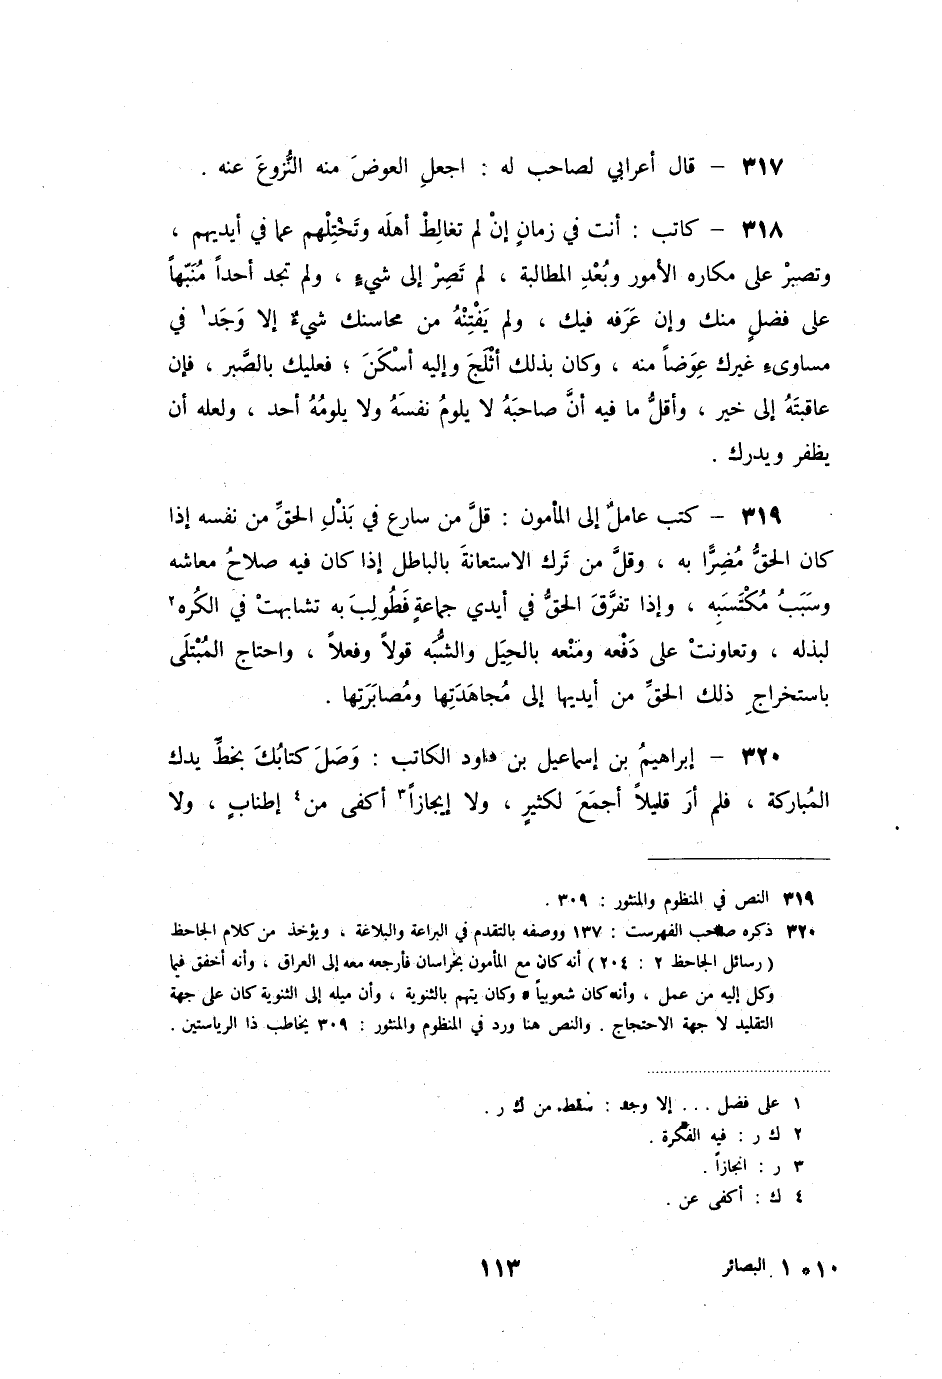 ٣١٧ – قال أعرابي لصاحب له : اجعلِ العوضَ منه النُّزوعَ عنه .
٣١٨ – كاتب : أنت في زمانٍ إنْ لم تغالِطْ أهلَه وتَخْتِلْهم عما في أيديهم ،
وتصبرْ على مكاره الأمور وبُعْدِ المطالبة ، لم تَصِرْ إلى شيءٍ ، ولم تجد أحداً مُنَبّهاً
على فضلٍ منك وإن عَرَفه فيك ، ولم يَفْتِنْهُ من محاسنك شيءٌ إلا وَجَد١ في
مساوىءِ غيرك عِوَضاً منه ، وكان بذلك أثْلَجَ وإليه أسْكَنَ ؛ فعليك بالصَّبر ، فإن
عاقبتَهُ إلى خير ، وأقلُّ ما فيه أنَّ صاحبَهُ لا يلومُ نفسَهُ ولا يلومُهُ أحد ، ولعله أن
يظفر ويدرك .
٣١٩ – كتب عاملٌ إلى المأمون : قلَّ من سارع في بَذْلِ الحقِّ من نفسه إذا
كان الحقُّ مُضِرًّا به ، وقلَّ من تَرك الاستعانةَ بالباطل إذا كان فيه صلاحُ معاشه
وسَبَبُ مُكْتَسَبِه ، وإذا تفرَّقَ الحقُّ في أيدي جماعةٍ فَطُولِبَ به تشابهتْ في الكُره٢
لبذله ، وتعاونتْ على دَفْعه ومَنْعه بالحِيَل والشُّبَه قولاً وفعلاً ، واحتاج المُبْتلَى
باستخراجِ ذلك الحقِّ من أيديها إلى مُجاهَدَتِها ومُصابَرَتِها .
٣٢٠ – إبراهيمُ بن إسماعيل بن داود الكاتب : وَصَلَ كتابُكَ بخطِّ يدك
المُباركة ، فلم أرَ قليلاً أجمَعَ لكثيرٍ ، ولا إيجازاً٣ أكفى من٤ إطنابٍ ، ولا
٣١٩ النص في المنظوم والمنثور : ٣٠٩ .
٣٢٠ ذكره صاحب الفهرست : ١٣٧ ووصفه بالتقدم في البراعة والبلاغة ، ويؤخذ من كلام الجاحظ
( رسائل الجاحظ ٢ : ٢٠٤ ) أنه كان مع المأمون بخراسان فأرجعه معه إلى العراق ، وأنه أخفق فيما
وكل إليه من عمل ، وأنه كان شعوبياً وكان يتهم بالثنوية ، وأن ميله إلى الثنوية كان على جهة
التقليد لا جهة الاحتجاج . والنص هنا ورد في المنظوم والمنثور : ٣٠٩ يخاطب ذا الرياستين .
١ على فضل ... إلا وجد : سقط من ك ر .
٢ ك ر : فيه الفكرة .
٣ ر : انجازاً .
٤ ك : أكفى عن .
١٠ * ١ البصائر
١١٣